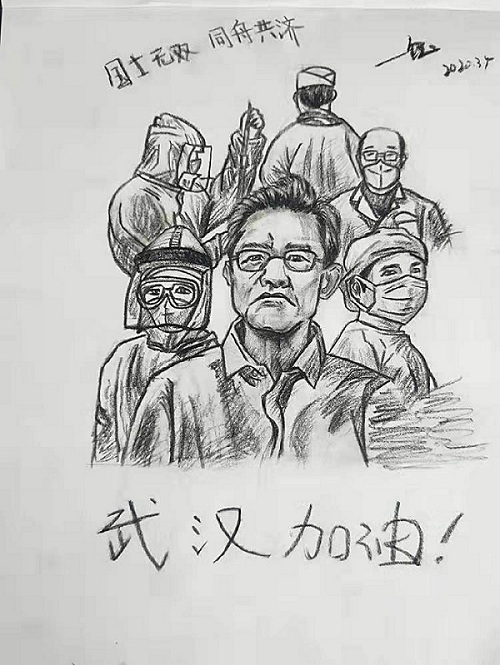 国士无双 同舟共济
2020.3.4
武汉加油!